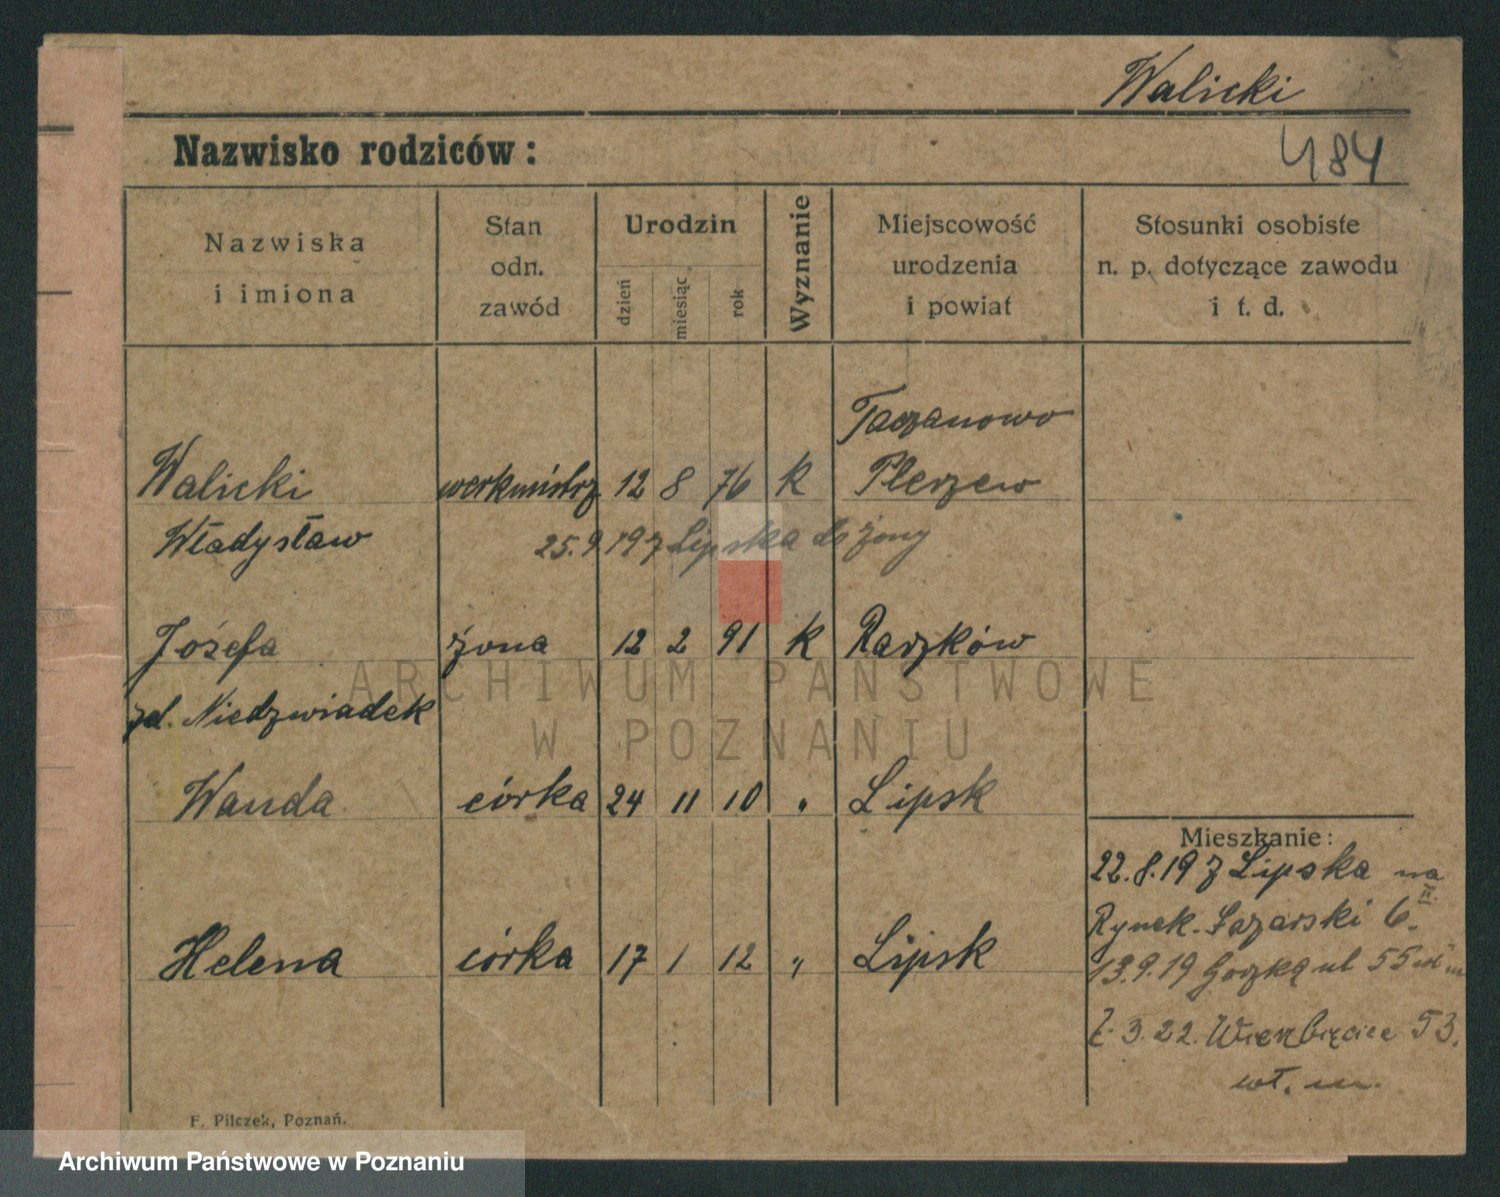 Walicki
484
Nazwisko rodziców:
Nazwiska
i imiona
Stan
odn.
zawód
Urodzin
dzień
miesiąc
rok
Wyznanie
Miejscowość
urodzenia
i powiat
Stosunki osobiste
n. p. dotyczące zawodu
i t. d.
Taczanowo
Walicki werkmistrz 12 8 76 k Pleszew
Władysław 25.9.19 z Lipska do żony
Józefa żona 12 2 91 k Raszków
zd. Niedzwiadek
Wanda córka 24 11 10 " Lipsk
Helena córka 17 1 12 " Lipsk
Mieszkanie:
22.8.19 z Lipska na
Rynek Łazarski 6. II.
13.9.19 ul 55
3.22. Wierzbięcice 53.
wł. m.
F. Pilczek, Poznań.
ARCHIWUM PAŃSTWOWE
W POZNANIU
Archiwum Państwowe w Poznaniu